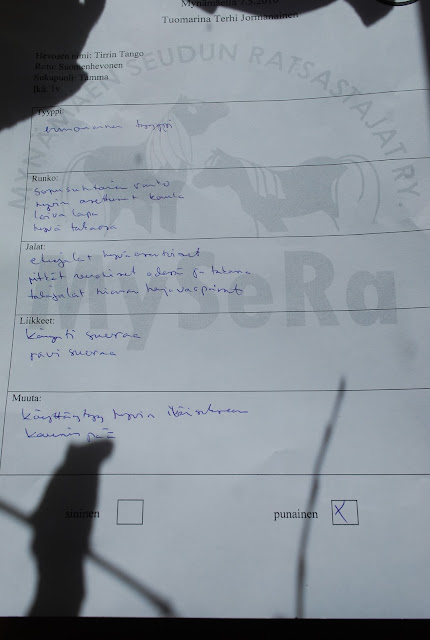 Mynämäellä 7.5.2016
Tuomarina Terhi Jormanainen
Hevosen nimi: Tirrin Tango
Rotu: Suomenhevonen
Sukupuoli: Tamma
Ikä: 1v
MYNÄMÄEN SEUDUN RATSASTAJAT RY.
Tyyppi:
erinomainen tyyppi
Runko:
sopusuhtainen runko
hyvin asettunut kaula
laiva lapa
hyvä takaosa
Jalat:
etujalat hyväasentoiset
pitkät vuohiset edessä ja takana
takajalat hieman
MySeRa
Liikkeet:
käynti suoraa
ravi suoraa
Muuta:
Käyttäytyy hyvin ikäisekseen
kaunis pää
sininen
punainen X